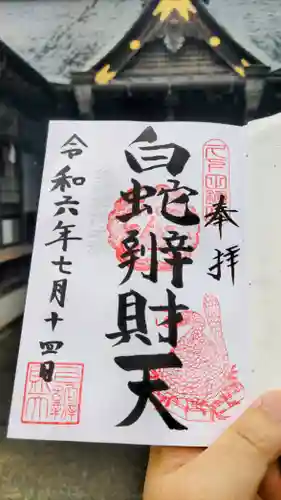 奉拝
白蛇辨財天
令和六年七月十四日